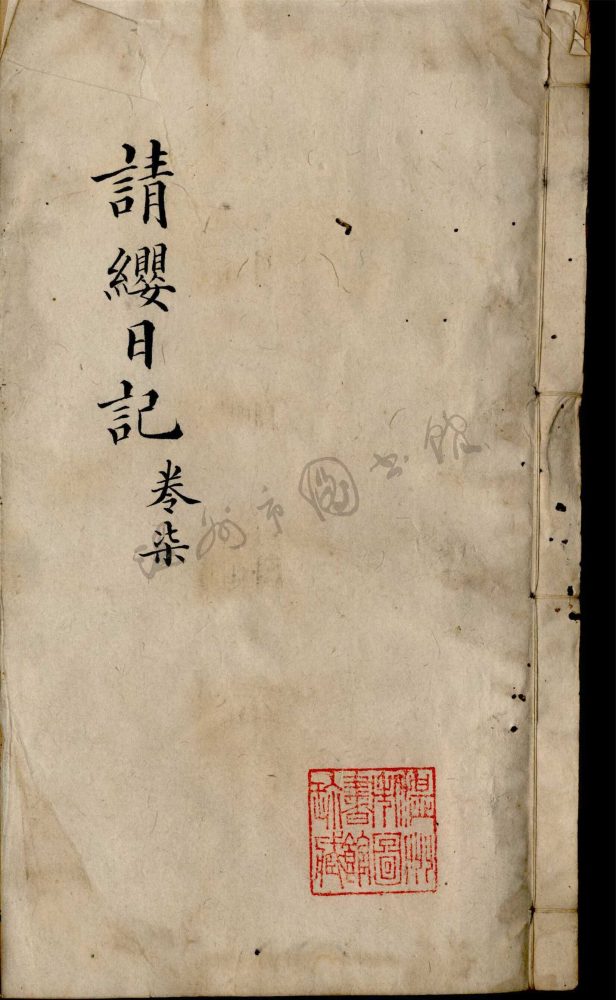 請纓日記 卷柒
温州市图书馆
温州
市圖
書館
珎藏